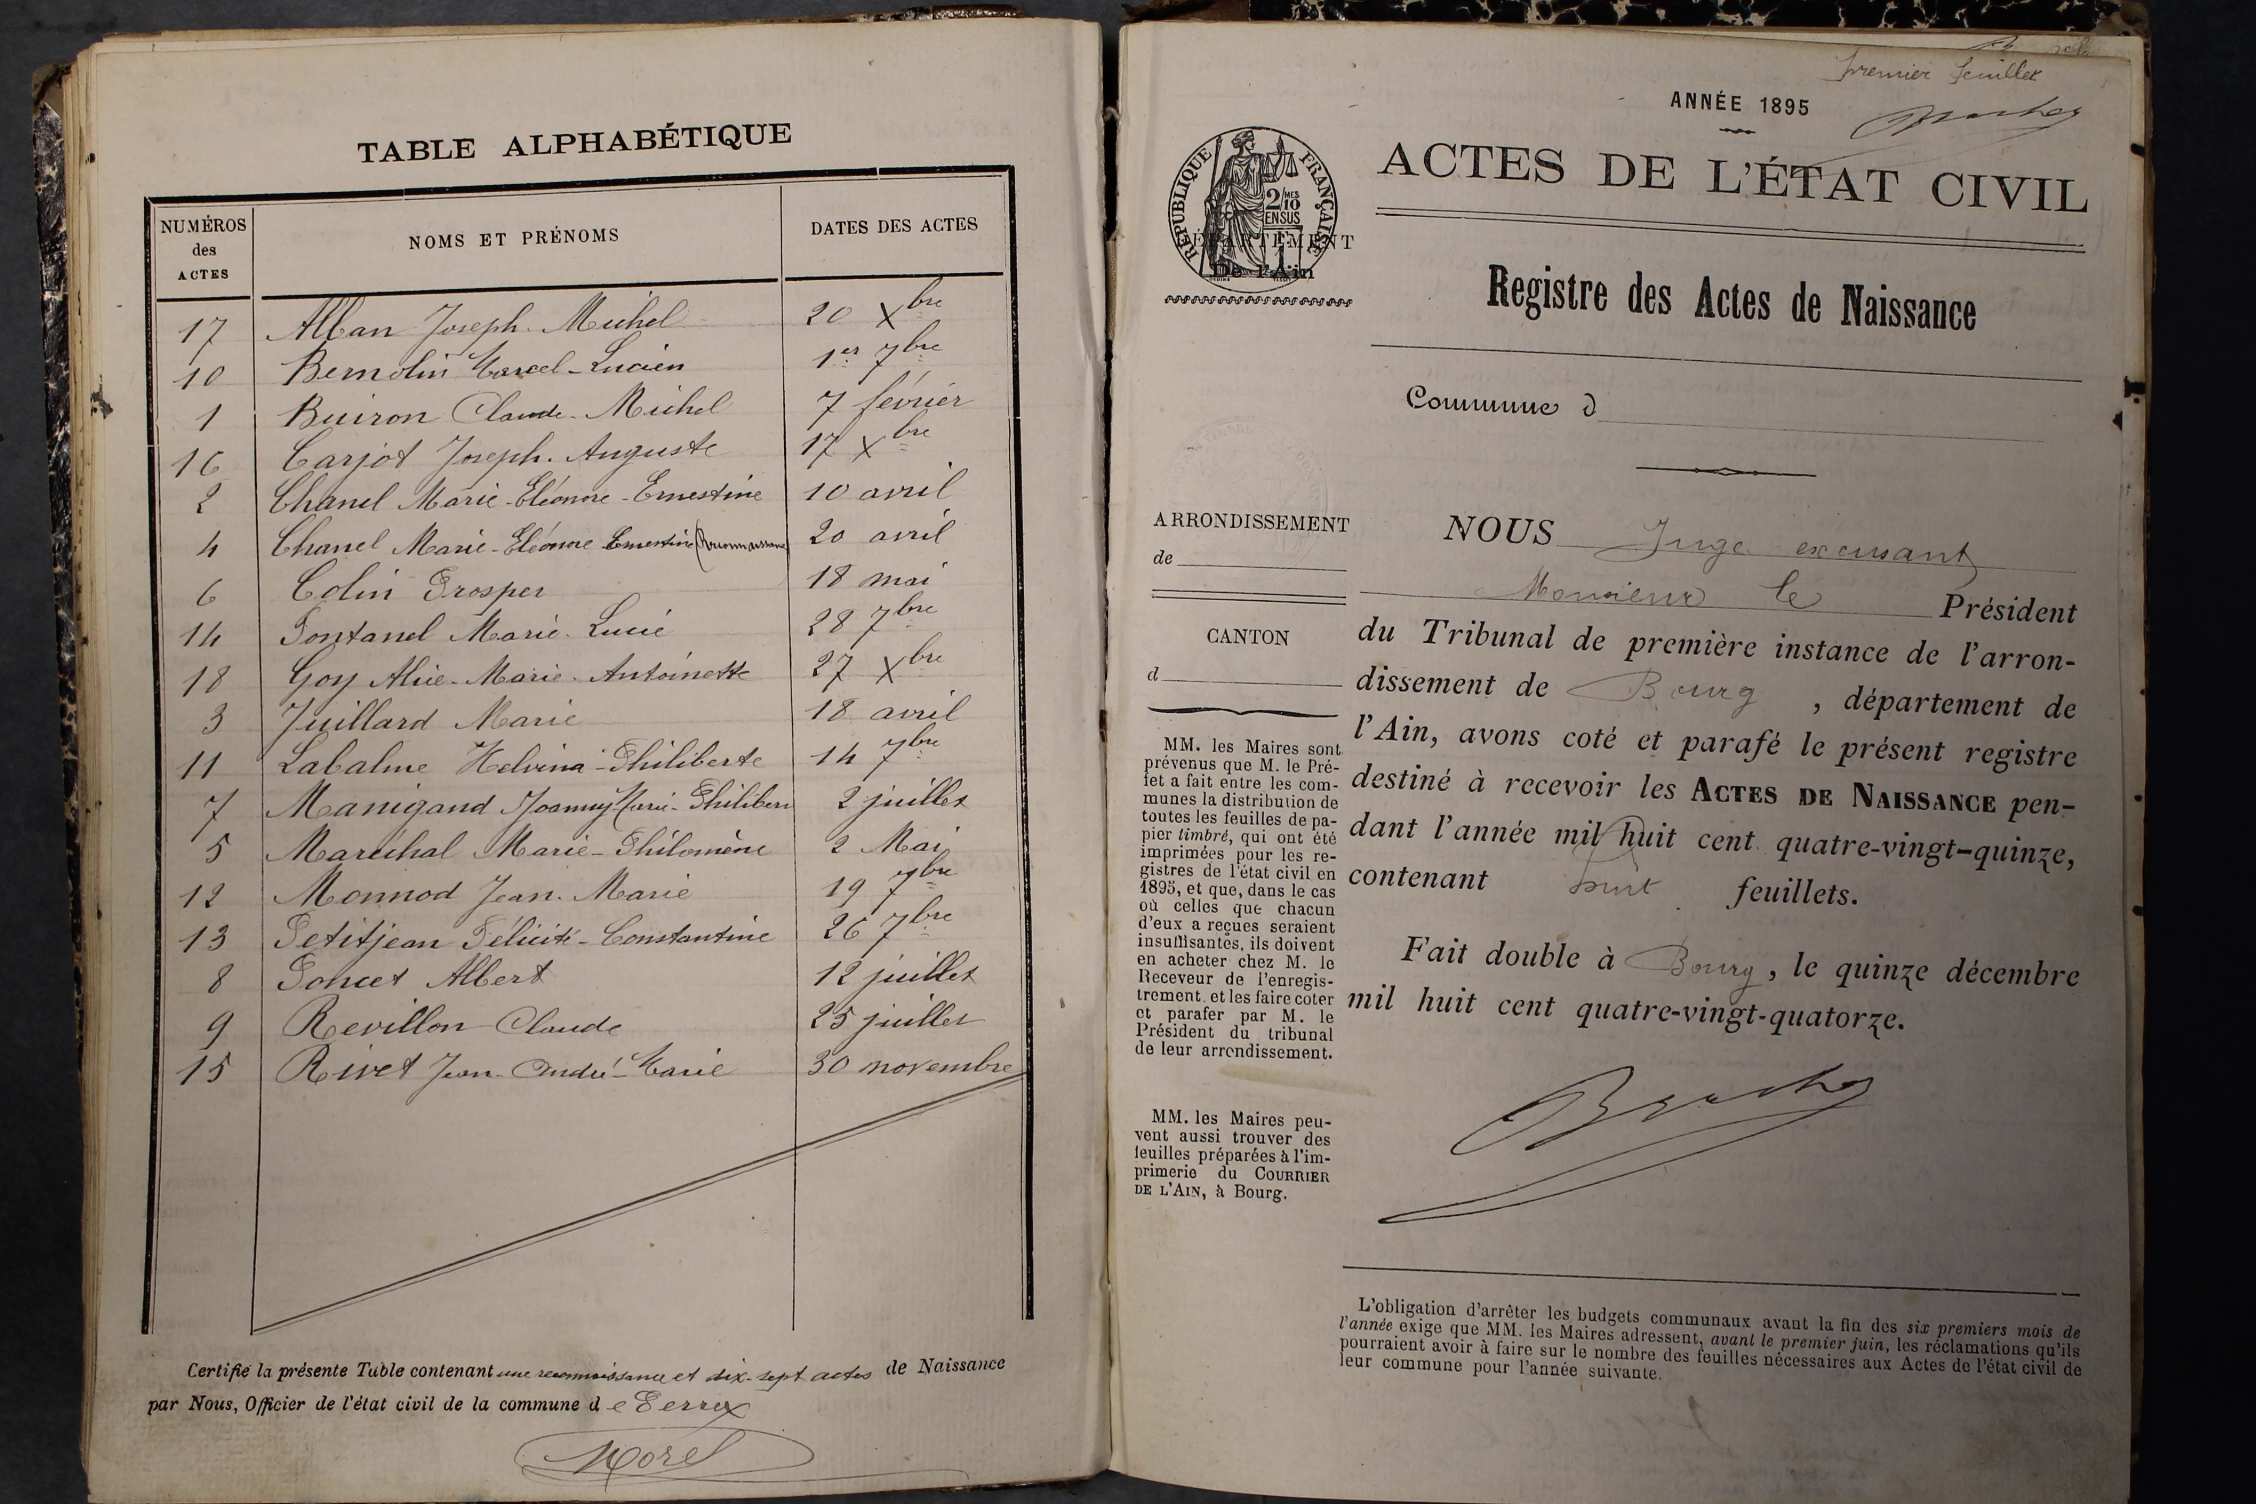 TABLE ALPHABÉTIQUE
NUMÉROS des ACTES NOMS ET PRÉNOMS DATES DES ACTES
17 Alban Joseph-Michel 20 Xbre
10 Bernolin Marcel-Lucien 1er 7bre
1 Buiron Claude-Michel 7 février
16 Carjot Joseph-Auguste 17 Xbre
2 Chanel Marie-Eléonore-Ernestine 10 avril
4 Chanel Marie-Eléonore Ernestine (Reconnaissance) 20 avril
6 Colin Prosper 18 mai
14 Fontanel Marie-Lucie 28 7bre
18 Goy Alice-Marie-Antoinette 27 Xbre
3 Juillard Marie 18 avril
11 Labalme Helvina-Philiberte 14 7bre
7 Manigand Joanny Marie-Philibert 2 juillet
5 Maréchal Marie-Philomène 2 Mai
12 Monnod Jean-Marie 19 7bre
13 Petitjean Félicité-Constantine 26 7bre
8 Poncet Albert 12 juillet
9 Revillon Claude 25 juillet
15 Rivet Jean-André-Marie 30 novembre
Certifié la présente Table contenant une reconnaissance et dix-sept actes de Naissance
par Nous, Officier de l'état civil de la commune de
Morel
premier feuillet
ANNÉE 1895
ACTES DE L'ÉTAT CIVIL
RÉPUBLIQUE FRANÇAISE
2/10 MES
EN SUS
DÉPARTEMENT
De l'Ain
Registre des Actes de Naissance
Commune d
ARRONDISSEMENT
de
CANTON
d
MM. les Maires sont
prévenus que M. le Pré-
fet a fait entre les com-
munes la distribution de
toutes les feuilles de pa-
pier timbré, qui ont été
imprimées pour les re-
gistres de l'état civil en
1895, et que, dans le cas
où celles que chacun
d'eux a reçues seraient
insuffisantes, ils doivent
en acheter chez M. le
Receveur de l'enregis-
trement et les faire coter
et parafer par M. le
Président du tribunal
de leur arrondissement.
MM. les Maires peu-
vent aussi trouver des
feuilles préparées à l'im-
primerie du COURRIER
DE L'AIN, à Bourg.
NOUS Juge excusant
Monsieur le Président
du Tribunal de première instance de l'arron-
dissement de Bourg, département de
l'Ain, avons coté et parafé le présent registre
destiné à recevoir les ACTES DE NAISSANCE pen-
dant l'année mil huit cent quatre-vingt-quinze,
contenant huit feuillets.
Fait double à Bourg, le quinze décembre
mil huit cent quatre-vingt-quatorze.
L'obligation d'arrêter les budgets communaux avant la fin des six premiers mois de
l'année exige que MM. les Maires adressent, avant le premier juin, les réclamations qu'ils
pourraient avoir à faire sur le nombre des feuilles nécessaires aux Actes de l'état civil de
leur commune pour l'année suivante.